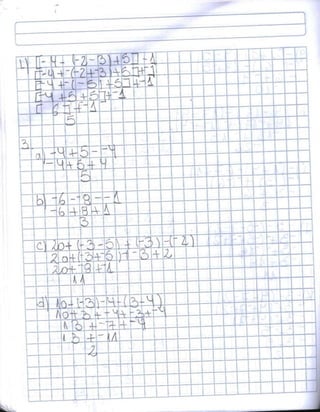 [-4 - (-2-3)+5]+-1
[-4+-(-2+-3)+5]+-1
[-4+-(-5)+5]+-1
[-4+5+5]+-1
[6]+-1
5
3.
a) -4+5--4
-4+5+4
5
b) -6--8--1
-6+8+1
3
c) 20+(-3-5)+(-3)-(-2)
20+(-3+-5)+-3+2
20+-8+-1
11
d) 10-(-3)-4+(3-4)
10+3+-4+-3+-4
13+-7+-4
13+-11
2